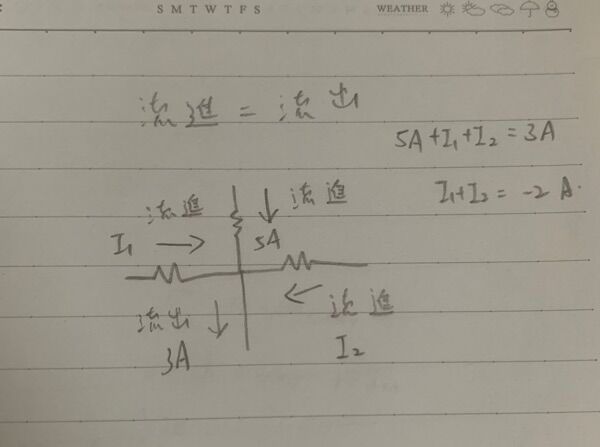 S M T W T F S WEATHER
流進 = 流出
5A + I₁ + I₂ = 3A
I₁ + I₂ = -2 A.
流進 流進
I₁ 5A
流出 流進
3A I₂